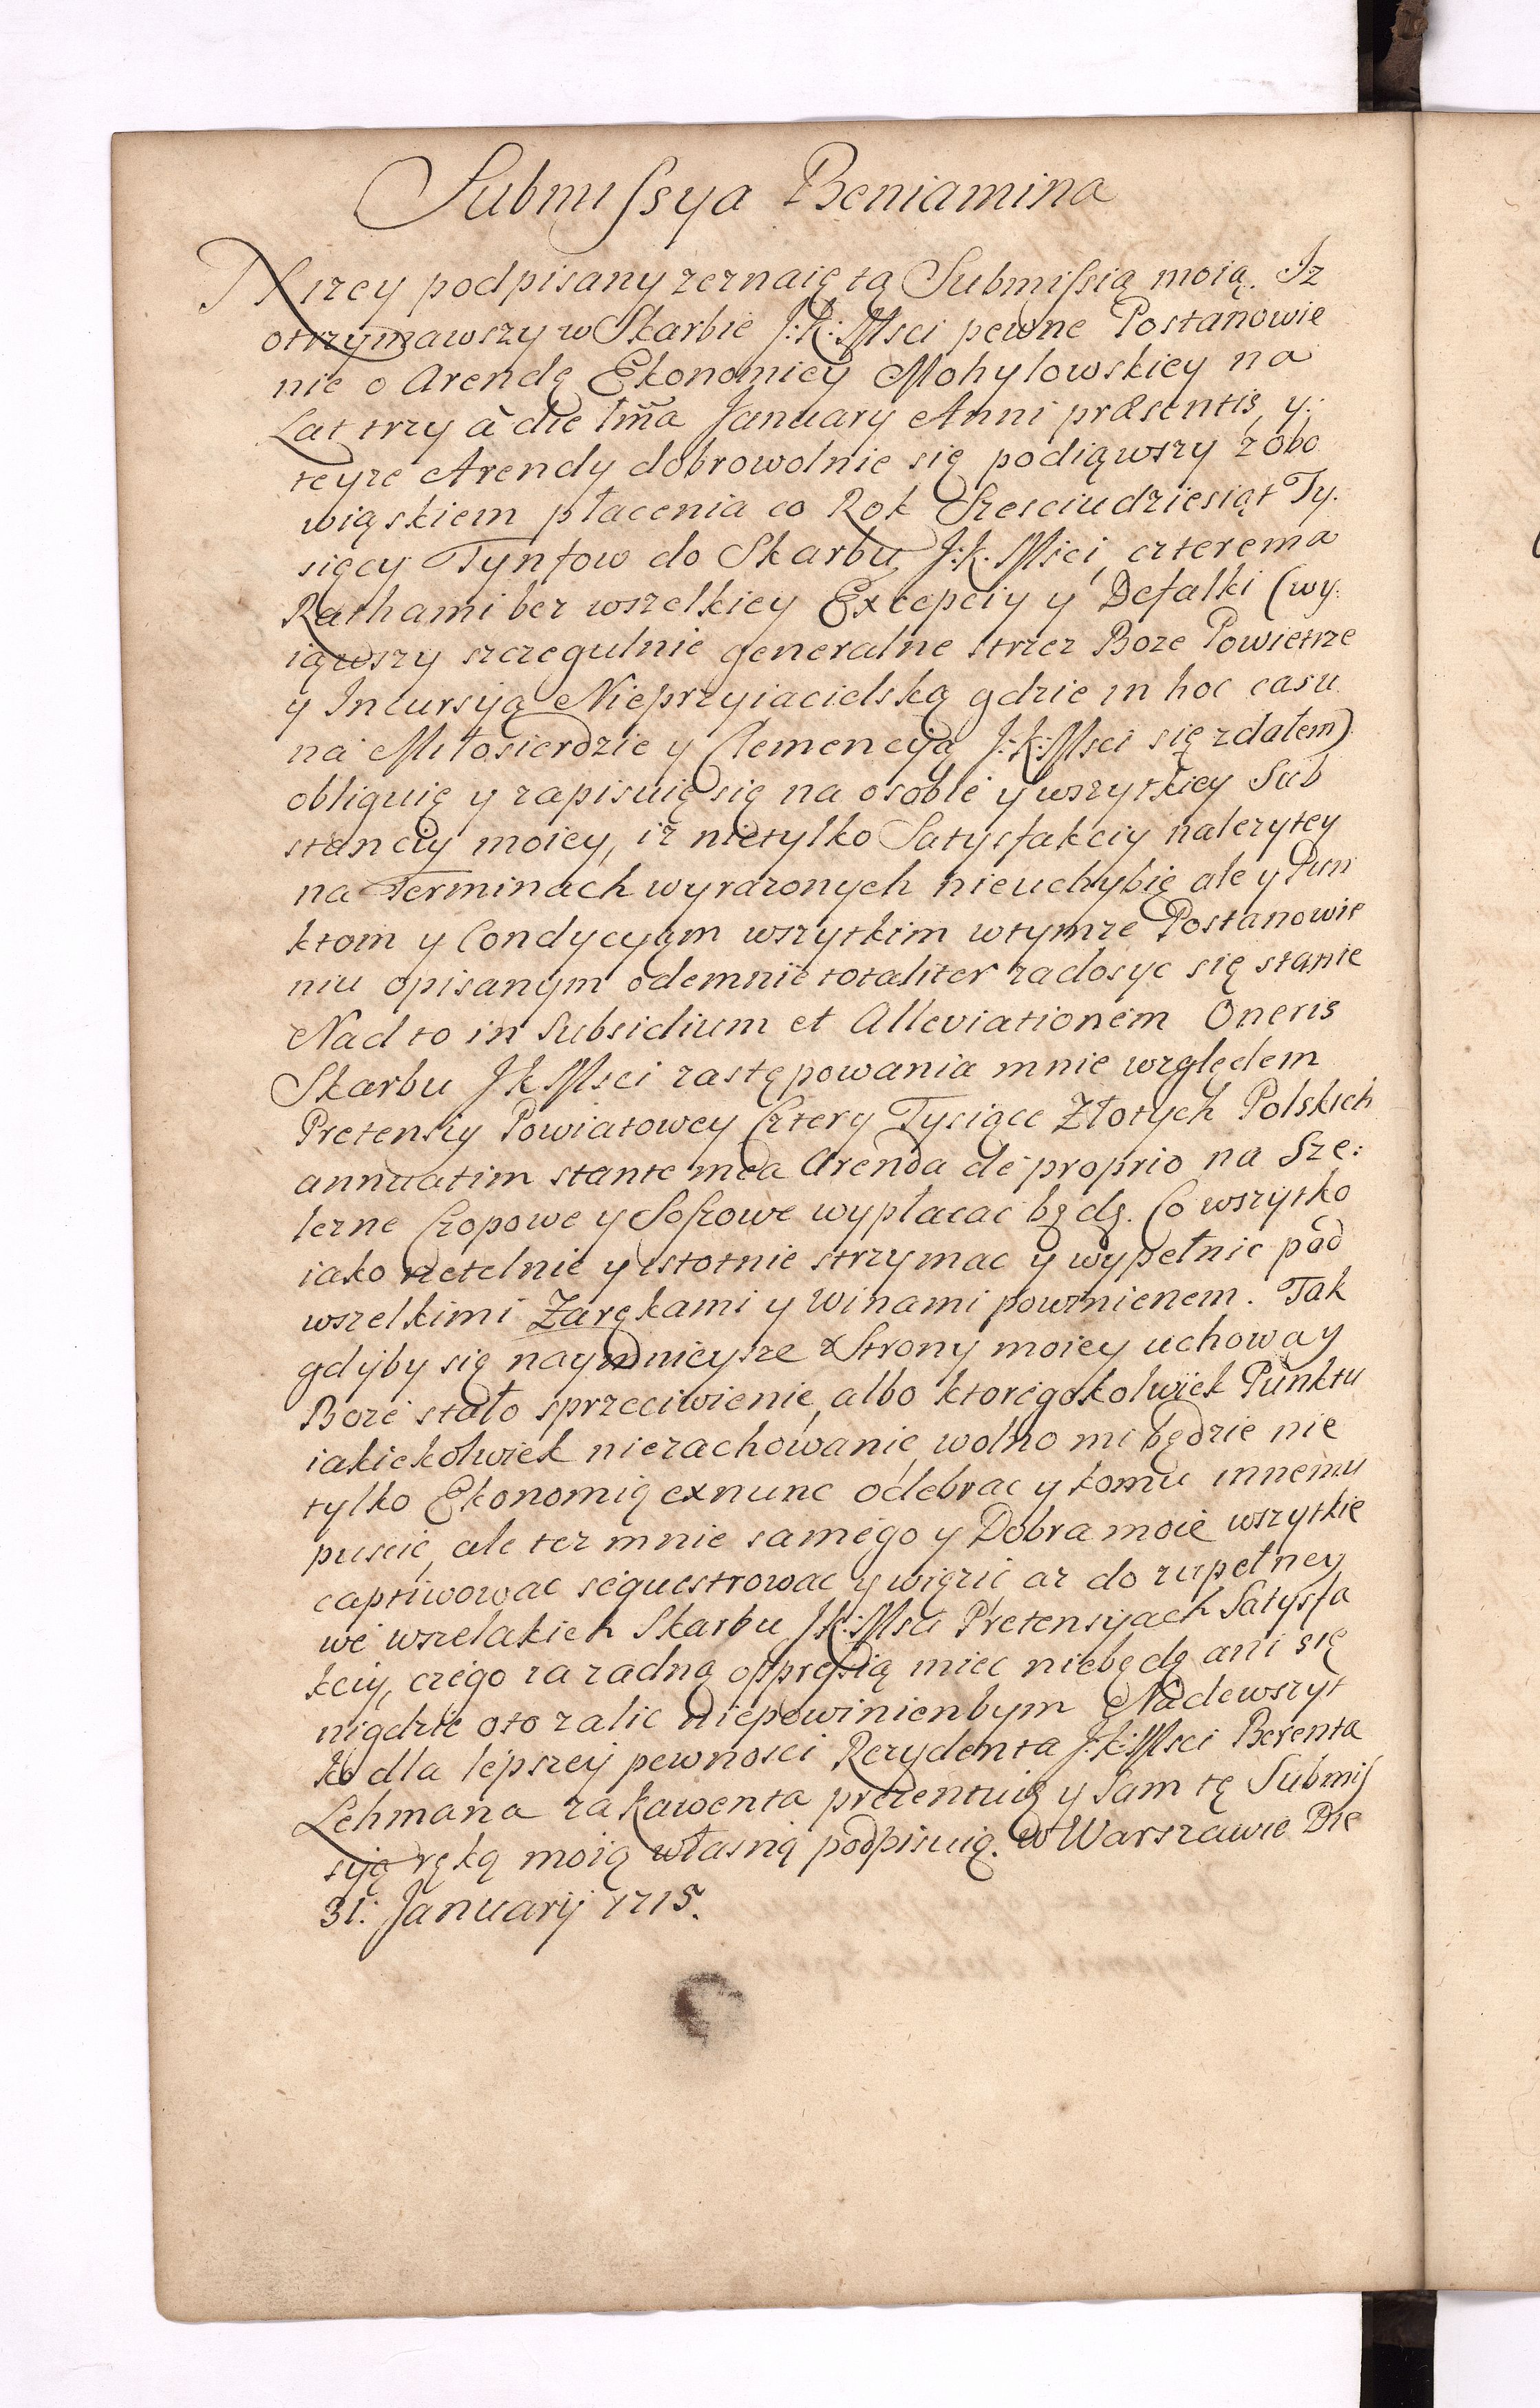 Submissya Beniamina
Nizey podpisany zeznaię tą Submissią moią. Iz
otrzymawszy w Skarbie J:K:Msci pewne Postanowie
nie o Arendę Ekonomiey Mohylowskiey na
Lat trzy à die 1ma January Anni præsentis, y:
teyze Arendy dobrowolnie się podiąwszy z obo
wiąskiem płacenia co Rok Szesciudziesiąt Ty:
sięcy Tynfow do Skarbu J:K:Msci, czterema
Rathami bez wszelkiey Excepciy y Defalki (wy:
iąwszy szczegulnie generalne strzez Boze Powietrze
y Incursyą Nieprzyiacielską gdzie in hoc casu
na Miłosierdzie y Clemencyą J:K:Msci się zdałem)
obliguię y zapisuię się na osobie y wszytkiey Sub
stanciy moiey, iż nietylko Satysfakciy nalezytey
na Terminach wyrazonych nieuchybię ale y Pun
ktom y Condycyom wszytkim wtymze Postanowie
niu opisanym odemnie totaliter zadosyc się stanie
Nad to in Subsidium et Alleviationem Oneris
Skarbu J K Msci zastępowania mnie względem
Pretensiy Powiatowey Cztery Tysiące Złotych Polskich
annuatim stante mea Arenda de proprio na Sze:
lezne Czopowe y Soszowe wypłacac będę. Co wszytko
iako rzetelnie y istotnie strzymac y wypełnic pod
wszelkimi Zarękami y Winami powinienem. Tak
gdyby się naymnieysze z Strony moiey uchoway
Boze stało sprzeciwienie, albo ktoregokolwiek Punktu
iakiekolwiek niezachowanie, wolno mi będzie nie
tylko Ekonomią exnunc odebrac y komu innemu
puscic, ale tez mnie samego y Dobra moie wszytkie
captiwowac sequestrowac y więzic az do zupełney
we wszelakich Skarbu J:K:Msci Pretensyach Satysfa
kciy, czego za zadną oppressią miec niebędę ani się
nigdzie oto zalic niepowinienbym Nadewszyt
ko dla lepszey pewnosci Rezydenta J:K:Msci Berenta
Lehmana za Kawenta prezentuię y sam tę Submis
syą ręką moią własną podpisuię. W Warszawie Die
31: Januarij 1715.